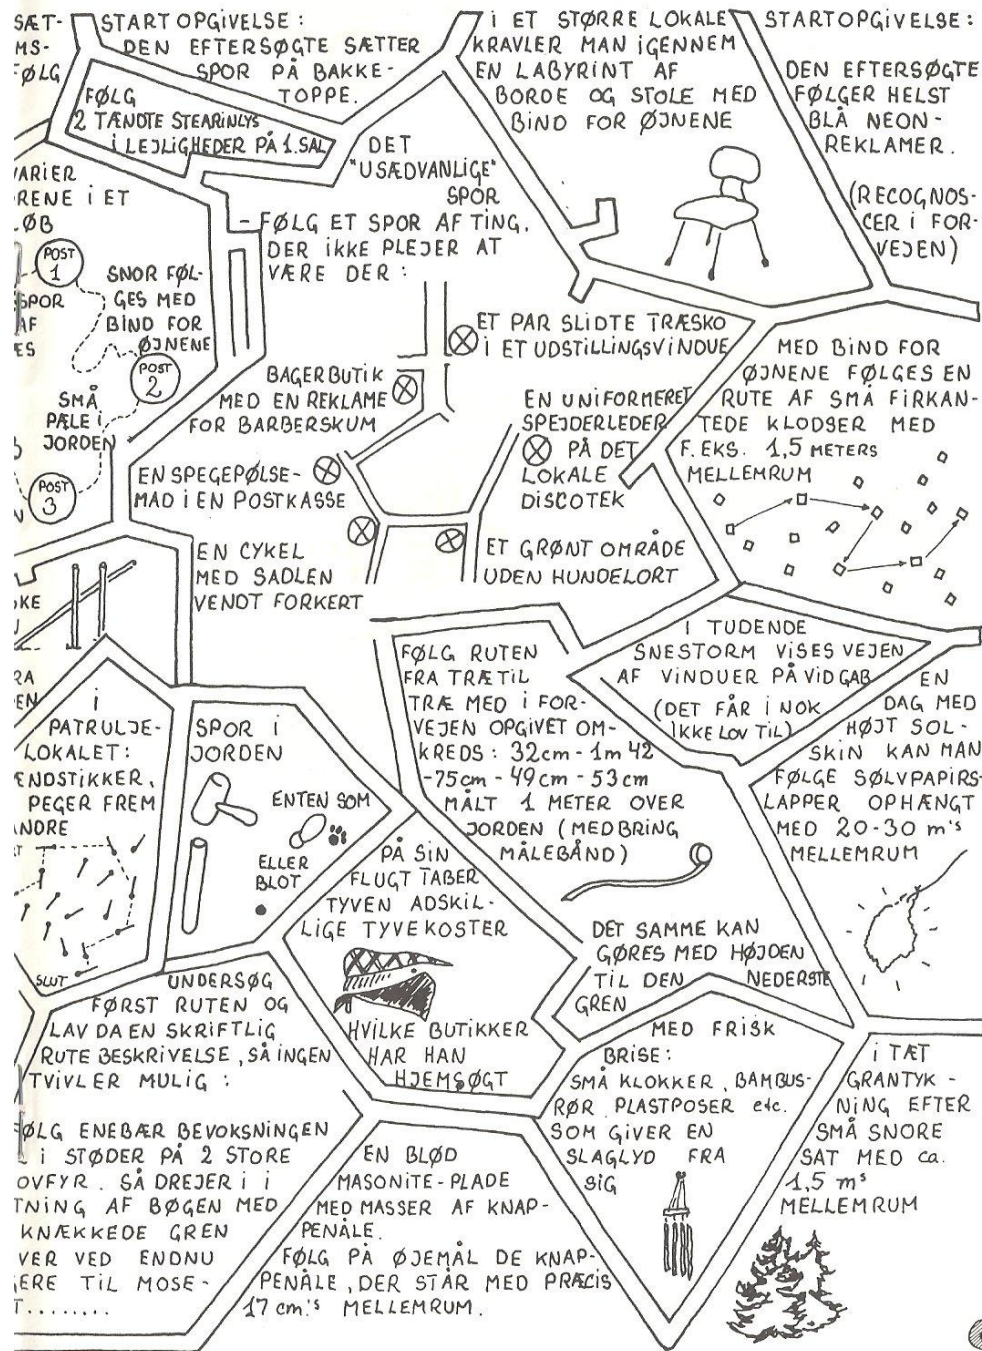 SÆT-
MS-
FØLG
STARTOPGIVELSE :
DEN EFTERSØGTE SÆTTER
SPOR PÅ BAKKE-
TOPPE.
FØLG
2 TÆNDTE STEARINLYS
I LEJLIGHEDER PÅ 1. SAL
I ET STØRRE LOKALE
KRAVLER MAN IGENNEM
EN LABYRINT AF
BORDE OG STOLE MED
BIND FOR ØJNENE
STARTOPGIVELSE :
DEN EFTERSØGTE
FØLGER HELST
BLÅ NEON-
REKLAMER.
(RECOGNOS-
CER I FOR-
VEJEN)
VARIER
RENE I ET
LØB
POST
1
SPOR
AF
ES
SNOR FØL-
GES MED
BIND FOR
ØJNENE
POST
2
SMÅ
PÆLE I
JORDEN
POST
3
DET
"USÆDVANLIGE"
SPOR
- FØLG ET SPOR AF TING,
DER IKKE PLEJER AT
VÆRE DER :
ET PAR SLIDTE TRÆSKO
I ET UDSTILLINGSVINDUE
BAGERBUTIK
MED EN REKLAME
FOR BARBERSKUM
EN UNIFORMERET
SPEJDERLEDER
PÅ DET
LOKALE
DISCOTEK
EN SPEGEPØLSE-
MAD I EN POSTKASSE
EN CYKEL
MED SADLEN
VENDT FORKERT
ET GRØNT OMRÅDE
UDEN HUNDELORT
MED BIND FOR
ØJNENE FØLGES EN
RUTE AF SMÅ FIRKAN-
TEDE KLODSER MED
F. EKS. 1,5 METERS
MELLEMRUM
I TUDENDE
SNESTORM VISES VEJEN
AF VINDUER PÅ VID GAB
(DET FÅR I NOK
IKKE LOV TIL)
FØLG RUTEN
FRA TRÆ TIL
TRÆ MED I FOR-
VEJEN OPGIVET OM-
KREDS : 32cm - 1m 42
-75cm - 49cm - 53cm
MÅLT 1 METER OVER
JORDEN (MEDBRING
MÅLEBÅND)
DET SAMME KAN
GØRES MED HØJDEN
TIL DEN NEDERSTE
GREN
EN
DAG MED
HØJT SOL-
SKIN KAN MAN
FØLGE SØLVPAPIRS-
LAPPER OPHÆNGT
MED 20-30 m's
MELLEMRUM
I
PATRULJE-
LOKALET:
ENDSTIKKER,
PEGER FREM
ANDRE
SLUT
SPOR I
JORDEN
ENTEN SOM
ELLER
BLOT
PÅ SIN
FLUGT TABER
TYVEN ADSKIL-
LIGE TYVEKOSTER
HVILKE BUTIKKER
HAR HAN
HJEMSØGT
UNDERSØG
FØRST RUTEN OG
LAV DA EN SKRIFTLIG
RUTE BESKRIVELSE, SÅ INGEN
TVIVL ER MULIG :
FØLG ENEBÆR BEVOKSNINGEN
I STØDER PÅ 2 STORE
OVFYR. SÅ DREJER I I
TNING AF BØGEN MED
KNÆKKEDE GREN
VER VED ENDNU
ERE TIL MOSE-
T........
EN BLØD
MASONITE-PLADE
MED MASSER AF KNAP-
PENÅLE.
FØLG PÅ ØJEMÅL DE KNAP-
PENÅLE, DER STÅR MED PRÆCIS
17 cm.'s MELLEMRUM.
MED FRISK
BRISE :
SMÅ KLOKKER, BAMBUS-
RØR, PLASTPOSER etc.
SOM GIVER EN
SLAGLYD FRA
SIG
I TÆT
GRANTYK-
NING EFTER
SMÅ SNORE
SAT MED ca.
1,5 m's
MELLEMRUM